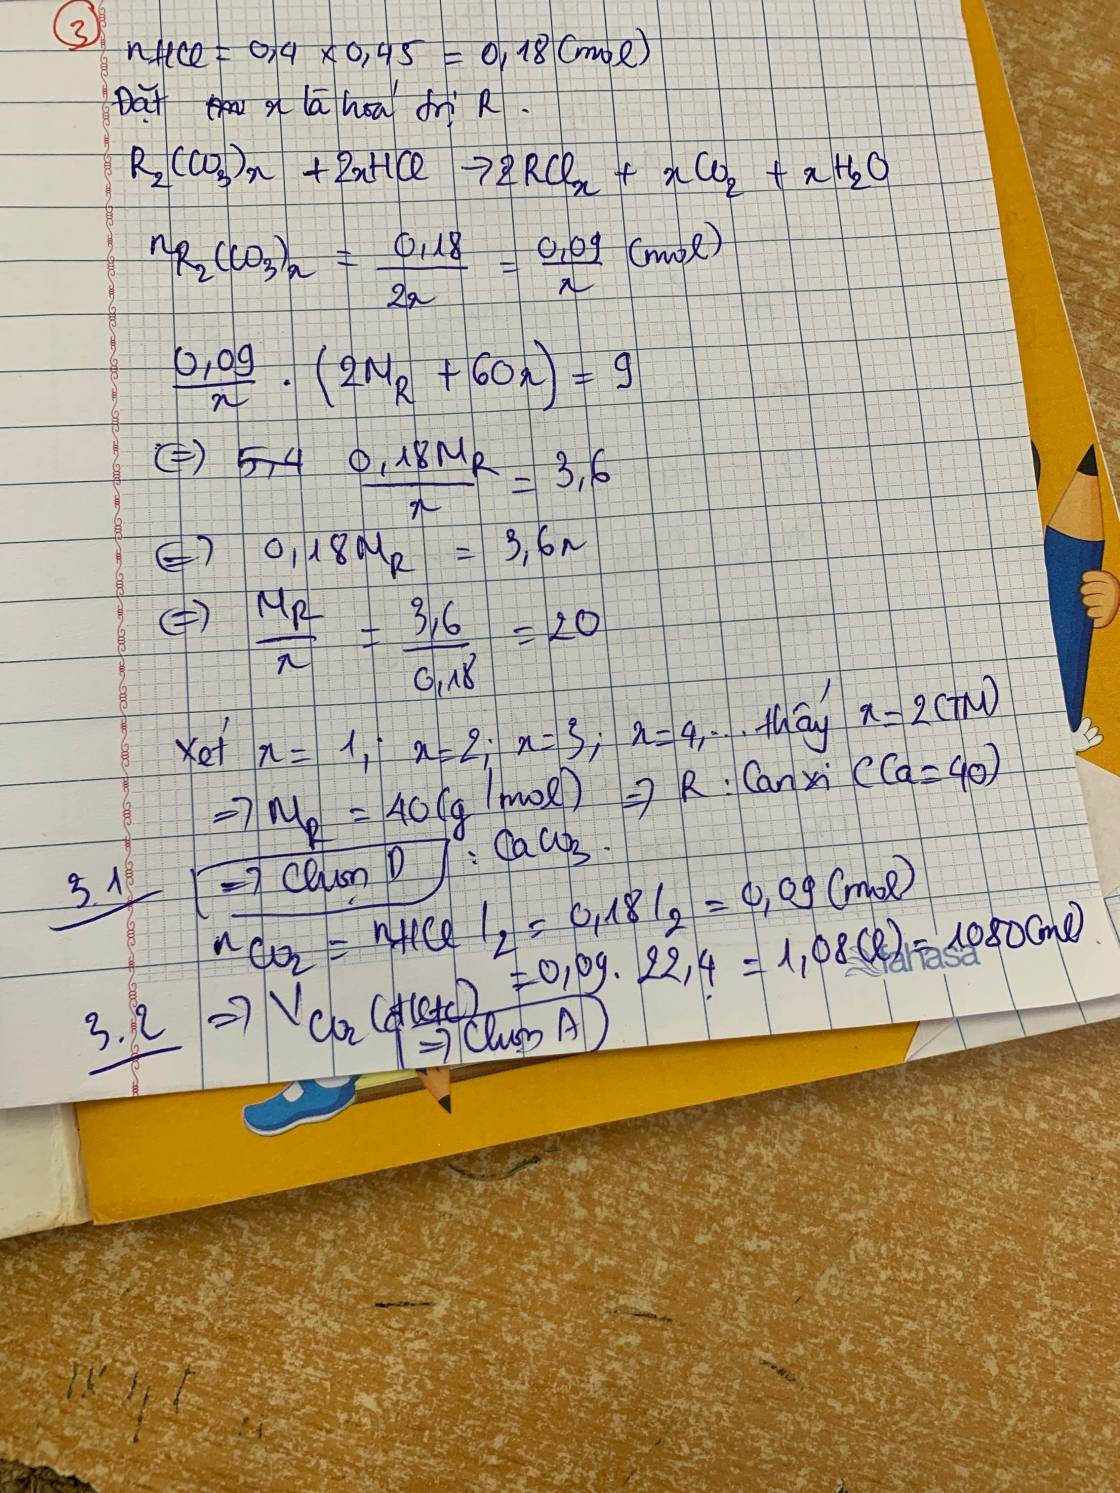 3
nHCl = 0,4 x 0,45 = 0,18 (mol)
Đặt x là hoá trị R.
R₂(CO₃)x + 2xHCl → 2RClx + xCO₂ + xH₂O
nR₂(CO₃)x = 0,18/2x = 0,09/x (mol)
0,09/x . (2MR + 60x) = 9
(=) 5,4 0,18MR/x = 3,6
(=) 0,18MR = 3,6x
(=) MR/x = 3,6/0,18 = 20
Xét x = 1; x=2; x=3; x=4,... thấy x=2(TM)
=> MR = 40 (g/mol) => R: Canxi (Ca=40)
3.1 => Chọn D : CaCO₃.
nCO₂ = nHCl/2 = 0,18/2 = 0,09 (mol)
3.2 => VCO₂ (đktc) = 0,09. 22,4 = 1,08(l) = 1080(ml)
=> Chọn A
fahasa